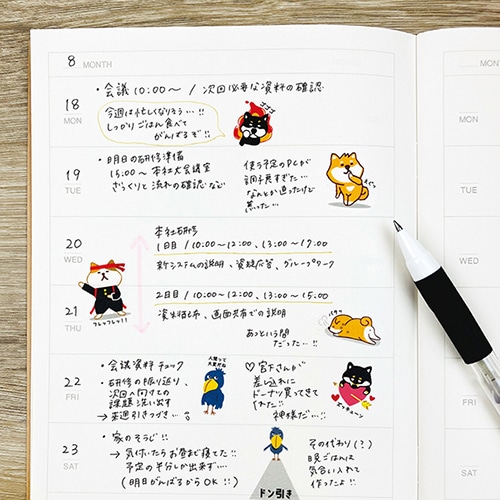 8 MONTH
18 MON
・会議 10:00〜 / 次回必要な資料の確認
今週は忙しくなりそう…!!
しっかりごはん食べて
がんばるぞ!!
19 TUE
・明日の研修準備
15:00〜 本社大会議室
ざっくりと流れの確認など
使う予定のPCが
調子悪すぎた…
なんとか直ったけど
焦った…
20 WED
本社研修
1日目 / 10:00〜12:00、13:00〜17:00
新システムの説明、質疑応答、グループワーク
フレッフレッ!!
21 THU
2日目 / 10:00〜12:00、13:00〜15:00
資料配布、画面共有での説明
あっという間
だった…!!
22 FRI
・会議資料チェック
・研修の振り返り、
次回へ向けての
課題洗い出す
→来週引きつづき…
人間って
大変だね
♡宮下さんが
差し入れに
ドーナツ買ってきて
くれた!!
神様だ…!!
23 SAT
・家のそうじ!!
→気付いたらお昼まで寝てた!!
予定の半分しか出来ず…
(明日がんばるからOK!!)
ドン引き
その代わり(?)
晩ごはんは
気合い入れて
作ったよ!!
MONTH
MON